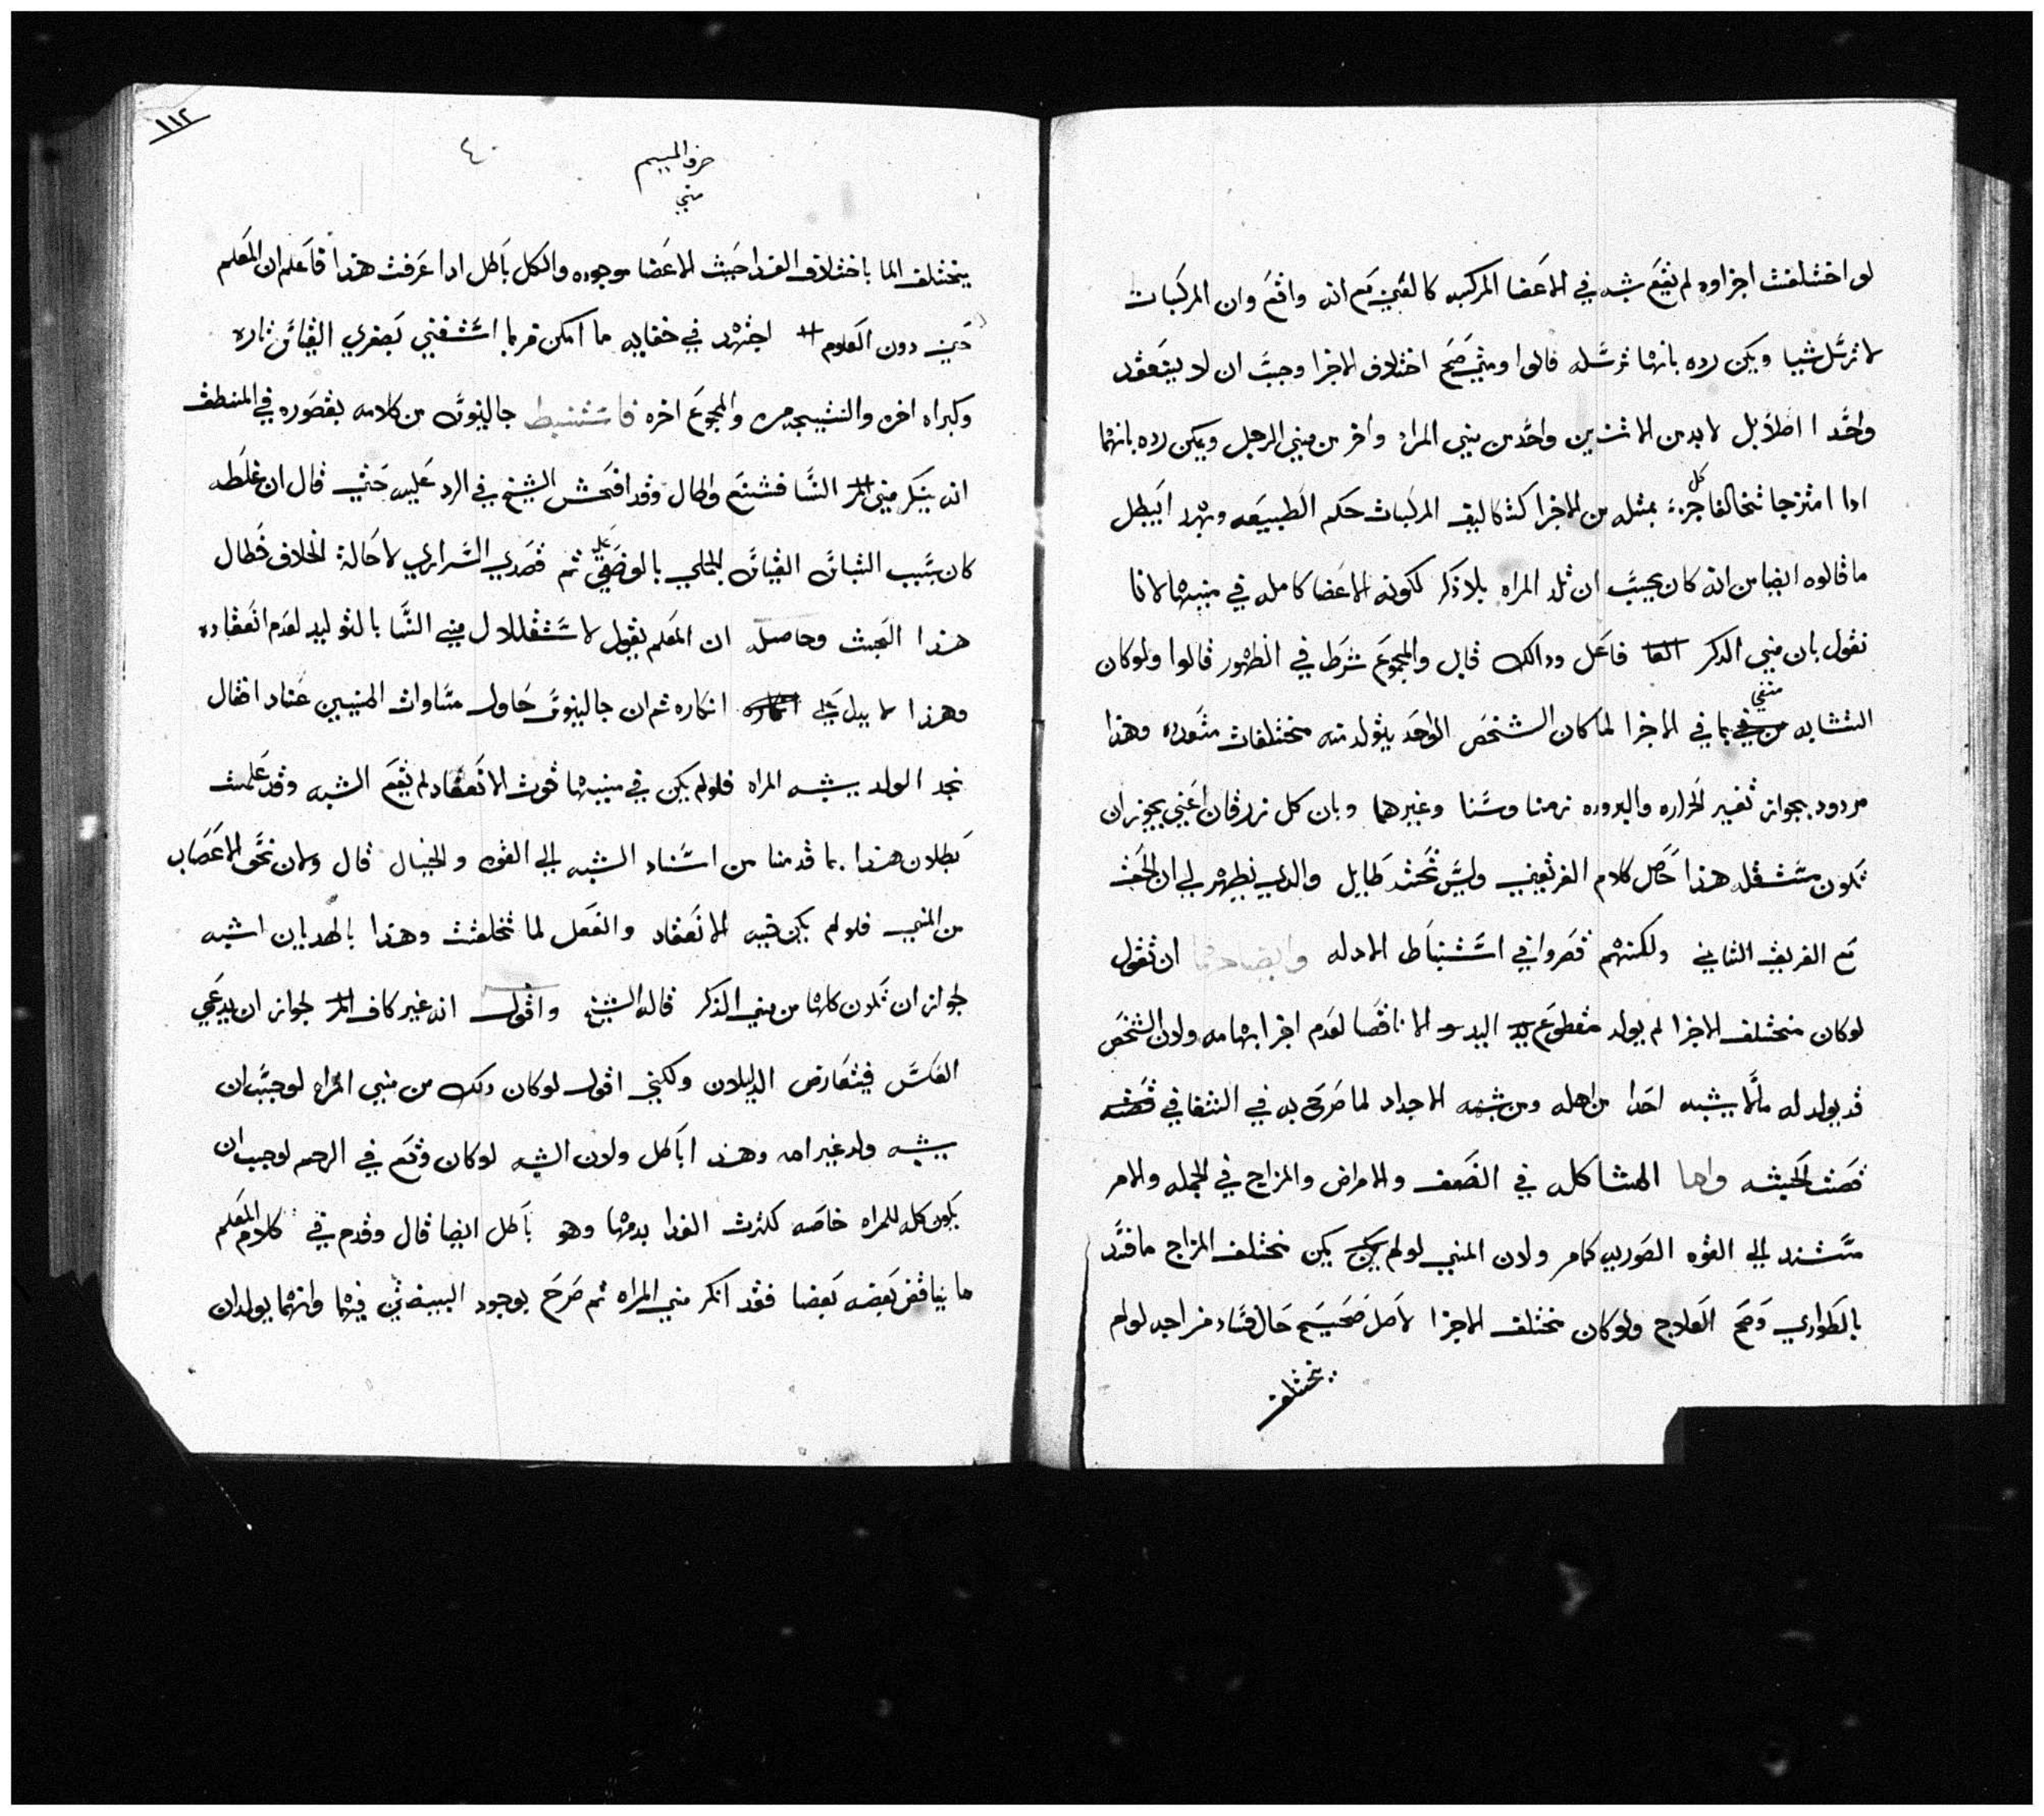 لو اختلفت اجزاوه لم يقع شبه في الاعضا المركبه كالعين مع انه واقع وان المركبات
لا ترسل شيا ويمكن رده بانها ترسله قالوا ومتي صح اختلاف الاجزا وجب ان لا ينعقد
واحدا اصلا بل لا بد من الاثنين واحد من مني المراه واخر من مني الرجل ويمكن رده بانهما
ادا امتزجا تخالفا كل جزء بمثله من الاجزا كتاليف المركبات حكم الطبيعه وبهدا ايبطل
ما قالوه ايضا من انه كان يجب ان تلد المراه بلا ذكر لكونه الاعضا كامله في منيها لانا
نقول بان مني الدكر فاعل ودالك قابل والمجموع شرط في الظهور قالوا ولو كان
التشابه منفي بما في الاجزا لما كان الشخص الواحد يتولد منه مختلفات متعدده وهذا
مردود بجواز تغير الحراره والبروده زمنا وسنا وغيرهما وبان كل زرقان اعني يجوز ان
تكون مستقله هذا حاصل كلام الفريقين وليس تحته طايل والدي يظهر لي ان الحق
مع الفريق الثاني ولكنهم قصروا في استنباط الادله وايضاحها ان تقول
لو كان مختلف الاجزا لم يولد مقطوع اليد الا ناقصا لعدم اجزا بهامه ولان الشخص
قد يولد له مالا يشبه احدا من اهله ومن شبهه الاجداد لما صرح به في الشفا في قصه
قصت الحبشه واما المشاكله في الضعف والامراض والمزاج في الجمله والامر
مستند الي القوه الصوريه كمامر ولان المني لو لم يكن مختلف المزاج ما فسد
بالطواري وصح العلاج ولو كان مختلف الاجزا لاصل صحيح حال فساد مزاجه لو لم
يختلف
١١٢
٤
حرف الميم
مني
يختلف الما باختلاف الغدا حيث الاعضا موجوده والكل باطل ادا عرفت هذا فاعلم ان المعلم
حين دون العلوم اجتهد في خفايه ما امكن فربما استغني بصغري القياس تاره
وكبراه اخري والنتيجه مره والمجموع اخره فاستنبط جالينوس من كلامه بقصوره في المنطق
انه ينكر مني النسا فشنع واطال وقد افحش الشيخ في الرد عليه حتي قال ان غلطه
كان سبب التباس القياس الحملي بالوضعي علي ثم قصدي الشرازي لاحالة الخلاف فطال
هذا البحث وحاصله ان المعلم يقول لا ستقلال مني النسا بالتوليد لعدم انعقاده
وهذا لا يدل علي انكاره ثم ان جالينوس حاول مساوات المنيين عنادا فقال
نجد الولد يشبه المراه فلو لم يكن في منيها قوت الانعقاد لم يقع الشبه وقد علمت
بطلان هذا بما قدمنا من اسناد الشبه الي القوه والخيال قال ولان نحو الاعصاب
من المني فلو لم يكن فيه الانعقاد والفعل لما تخلقت وهذا بالهديان اشبه
لجواز ان تكون كلها من مني الذكر قاله الشيخ واقول انه غير كاف لجواز ان يدعي
العكس فيتعارض الدليلان ولكني اقول لو كان دلك من مني المراه لوجب ان
يشبه ولد غير امه وهذا اباطل ولان الشبه لو كان وقع في الرحم لوجب ان
يكون كله للمراه خاصه لكثرت الغدا بدمها وهو باطل ايضا قال وقدم في كلام المعلم
ما يناقض بعضه بعضا فقد انكر مني المراه ثم صرح بوجود البيضتين فيها وانهما يولدان